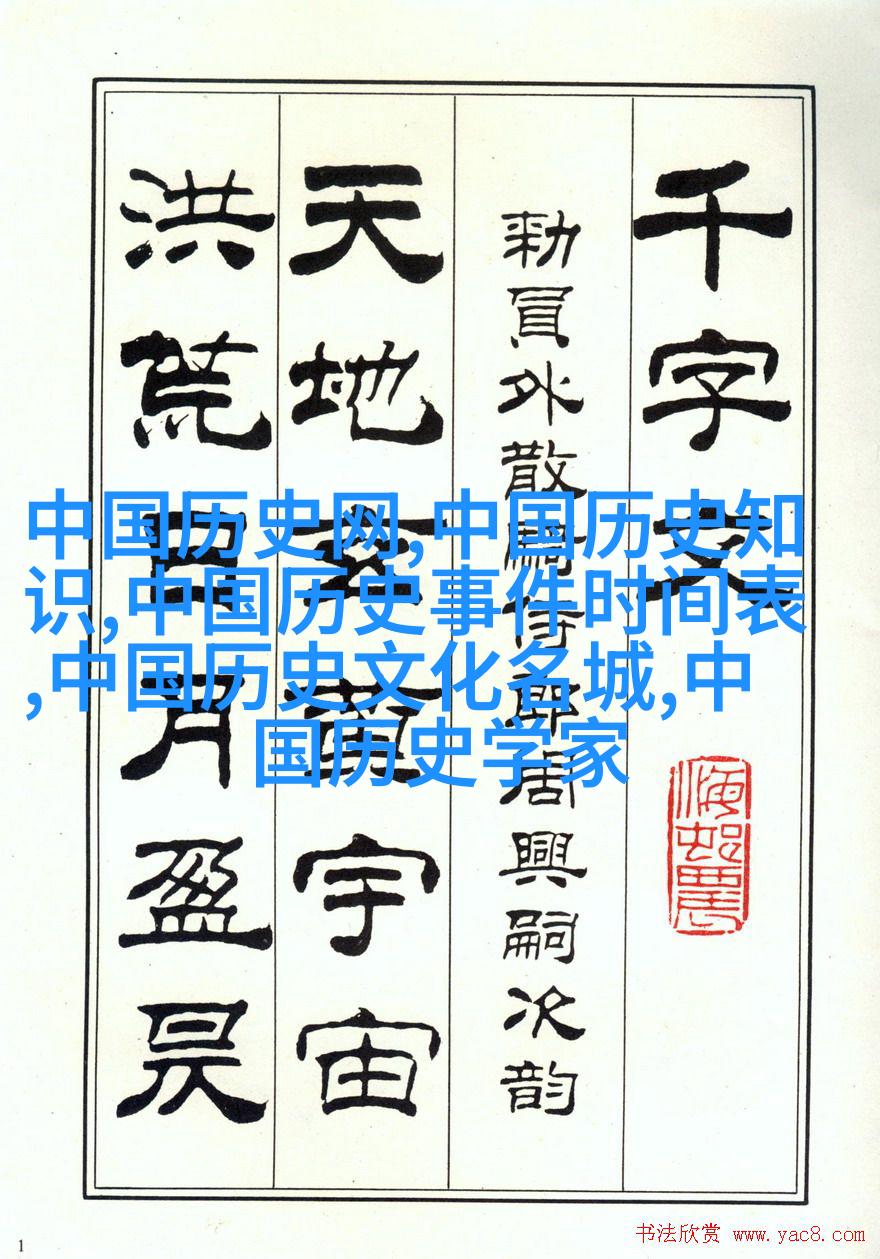 千字文
勑員外散騎侍郎周興嗣次韵
天地玄黃宇宙
洪荒日月盈昃
中国历史网,中国历史知
识,中国历史事件时间表
,中国历史文化名城,中
国历史学家
1
书法欣赏 www.yac8.com